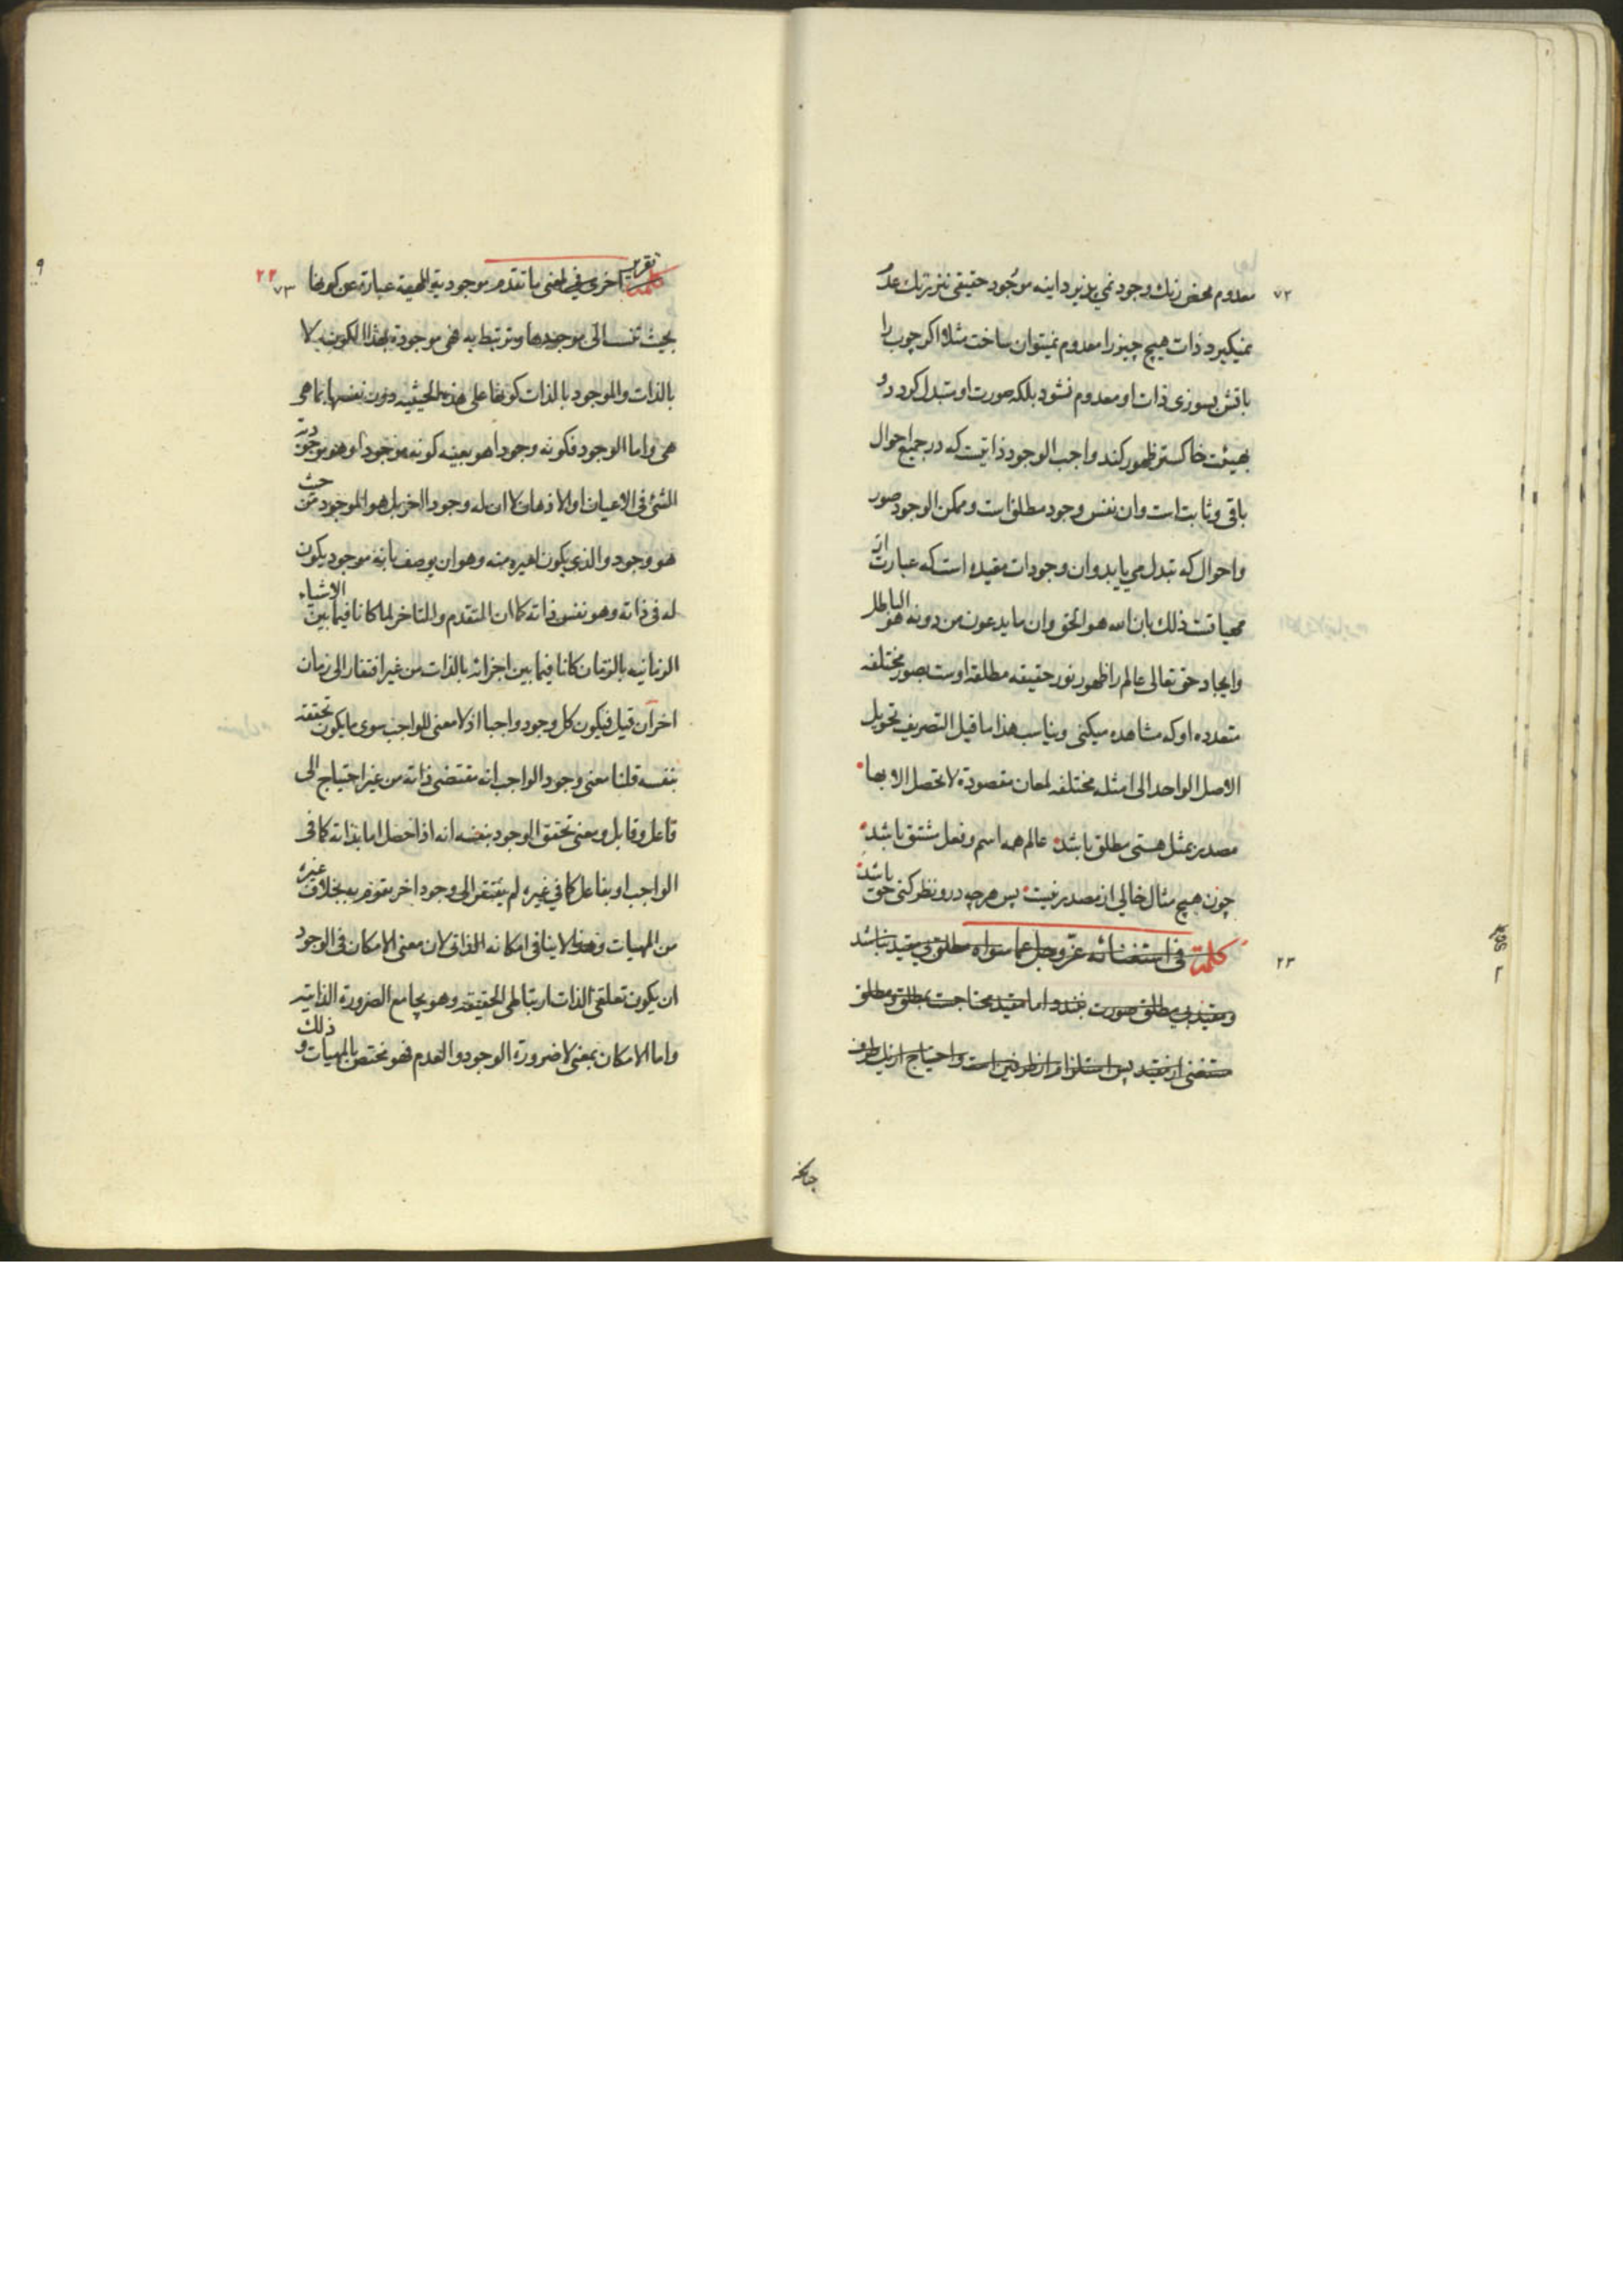 معدوم محض رنك وجود نمي پذيرد اينه موجود حقيقي نيز ترك عدم
نميكيرد ذات هيچ چيز را معدوم نميتوان ساخت مثلا اكر چوب را
باتش بسوزى ذات او معدوم نشود بلكه صورت او متبدل كردد و
بهيئت خاكستر ظهور كند واجب الوجود ذاتيست كه در جميع احوال
باقى و ثابت است وان نفس وجود مطلق است وممكن الوجود صور
واحوال كه تبدل مي يابد وان وجودات مقيده است كه عبارت از
ذلك بان الله هو الحق وان ما يدعون من دونه هو الباطل
وايجاد حق تعالى عالم را ظهور نور حقيقه مطلقه اوست بصور مختلفه
متعدده او كه مشاهده ميكنى ويناسب هذا ما قيل التصريف تحويل
الاصل الواحد الى امثله مختلفه لمعان مقصودة لا تحصل الا بها
مصدر بمثل هستى مطلق باشد عالم همه اسم وفعل مشتق باشد
چون هيچ مثال خالي از مصدر نيست پس هرچه درو نظر كنى حق باشد
كلمة في استغنائه عز وجل عما سواه مطلق بي مقيد نباشد
ومقيد بي مطلق صورت نبندد اما مقيد محتاجست بمطلق ومطلق
مستغنى از مقيد پس استلزام از طرفين است واحتياج از يك طرف
٧٢
٢٣
٩
كلمة تقرير اخرى في لمعنى ما تقدم موجودية المهية عبارة عن كونها
٢٢
٧٣
بحيث تنسب الى موجدها وترتبط به فهي موجودة بهذا الكون لا
بالذات والموجود بالذات كونها على هذه الحيثية دون نفسها بما هي
هي واما الوجود فكونه وجودا هو بعينه كونه موجودا وهو موجودية
الشئ في الاعيان او الاذهان لا ان له وجودا اخر بل هو الموجود من حيث
هو وجود والذي يكون لغيره منه وهو ان يوصف بانه موجود يكون
له في ذاته وهو نفس ذاته كما ان المتقدم والمتاخر لما كانا فيما بين الاشياء
الزمانيه بالزمان كانا فيما بين اجزائه بالذات من غير افتقار الى زمان
اخر ان قيل فيكون كل وجود واجبا اذ لا معنى للواجب سوى ما يكون تحققه
بنفسه قلنا معنى وجود الواجب انه مقتضى ذاته من غير احتياج الى
فاعل وقابل ومعنى تحقق الوجود بنفسه انه اذا حصل اما بذاته كما في
الواجب او بفاعل كما في غيره لم يفتقر الى وجود اخر يقوم به بخلاف غيره
من المهيات وهذا لا ينافي امكانه الذاتي لان معنى الامكان في الوجود
ان يكون تعلقي الذات ارتباطي الحقيقه وهو يجامع الضرورة الذاتيه
واما الامكان بمعنى لا ضرورة الوجود والعدم فهو مختص بالمهيات و ذلك